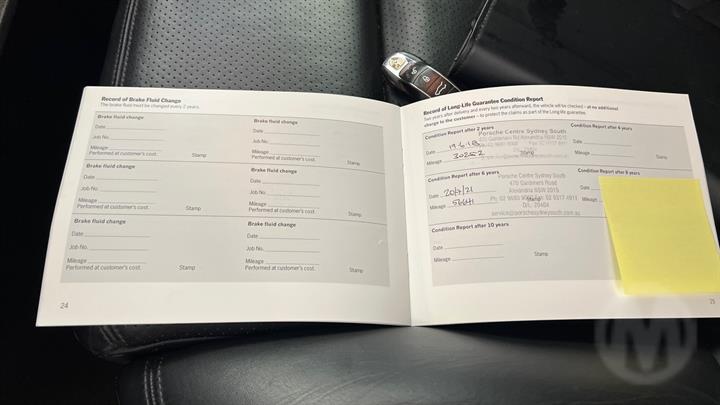 Record of Brake Fluid Change
The brake fluid must be changed every 2 years.
Brake fluid change
Date
Job No.
Mileage
Performed at customer's cost. Stamp
Brake fluid change
Date
Job No.
Mileage
Performed at customer's cost. Stamp
Brake fluid change
Date
Job No.
Mileage
Performed at customer's cost. Stamp
Brake fluid change
Date
Job No.
Mileage
Performed at customer's cost. Stamp
Brake fluid change
Date
Job No.
Mileage
Performed at customer's cost. Stamp
Brake fluid change
Date
Job No.
Mileage
Performed at customer's cost. Stamp
24
Record of Long-Life Guarantee Condition Report
Two years after delivery and every two years afterward, the vehicle will be checked – at no additional
charge to the customer – to protect the claims as part of the Long-life guarantee.
Condition Report after 2 years
Porsche Centre Sydney South
Date
Mileage
Stamp
Condition Report after 4 years
Date
Mileage
Condition Report after 6 years
Porsche Centre Sydney South
470 Gardeners Road
Alexandria NSW 2015
Date 20/7/21
Mileage
Stamp
service@porschesydneysouth.com.au
Condition Report after 8 years
Date
Mileage
Condition Report after 10 years
Date
Mileage Stamp
25
M